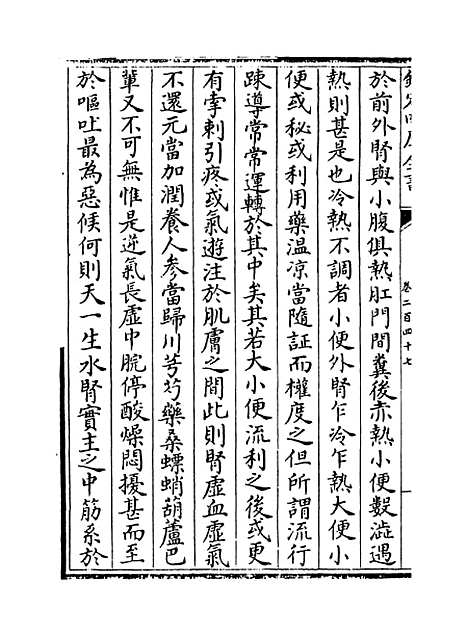 欽定四庫全書
卷二百四十七
於前外腎與小腹俱熱肛門間糞後赤熱小便數澁遇
熱則甚是也冷熱不調者小便外腎乍冷乍熱大便小
便或秘或利用藥温凉當隨証而權度之但所謂流行
踈導常常運轉於其中矣其若大小便流利之後或更
有牽刺引疼或氣遊注於肌膚之間此則腎虛血虛氣
不還元當加潤養人參當歸川芎芍藥桑螵蛸葫蘆巴
輩又不可無惟是逆氣長虛中脘停酸燥悶擾甚而至
於嘔吐最為惡候何則天一生水腎實主之中筋系於